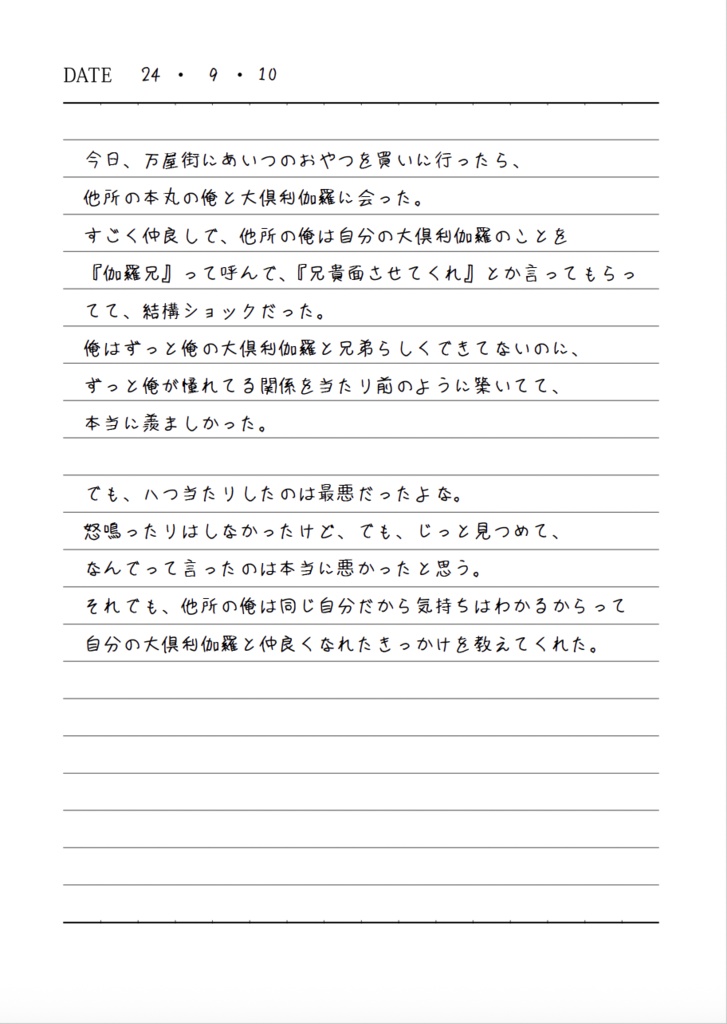 DATE 24 ・ 9 ・ 10
今日、万屋街にあいつのおやつを買いに行ったら、
他所の本丸の俺と大倶利伽羅に会った。
すごく仲良しで、他所の俺は自分の大倶利伽羅のことを
『伽羅兄』って呼んで、『兄貴面させてくれ』とか言ってもらっ
てて、結構ショックだった。
俺はずっと俺の大倶利伽羅と兄弟らしくできてないのに、
ずっと俺が憧れてる関係を当たり前のように築いてて、
本当に羨ましかった。
でも、八つ当たりしたのは最悪だったよな。
怒鳴ったりはしなかったけど、でも、じっと見つめて、
なんでって言ったのは本当に悪かったと思う。
それでも、他所の俺は同じ自分だから気持ちはわかるからって
自分の大倶利伽羅と仲良くなれたきっかけを教えてくれた。